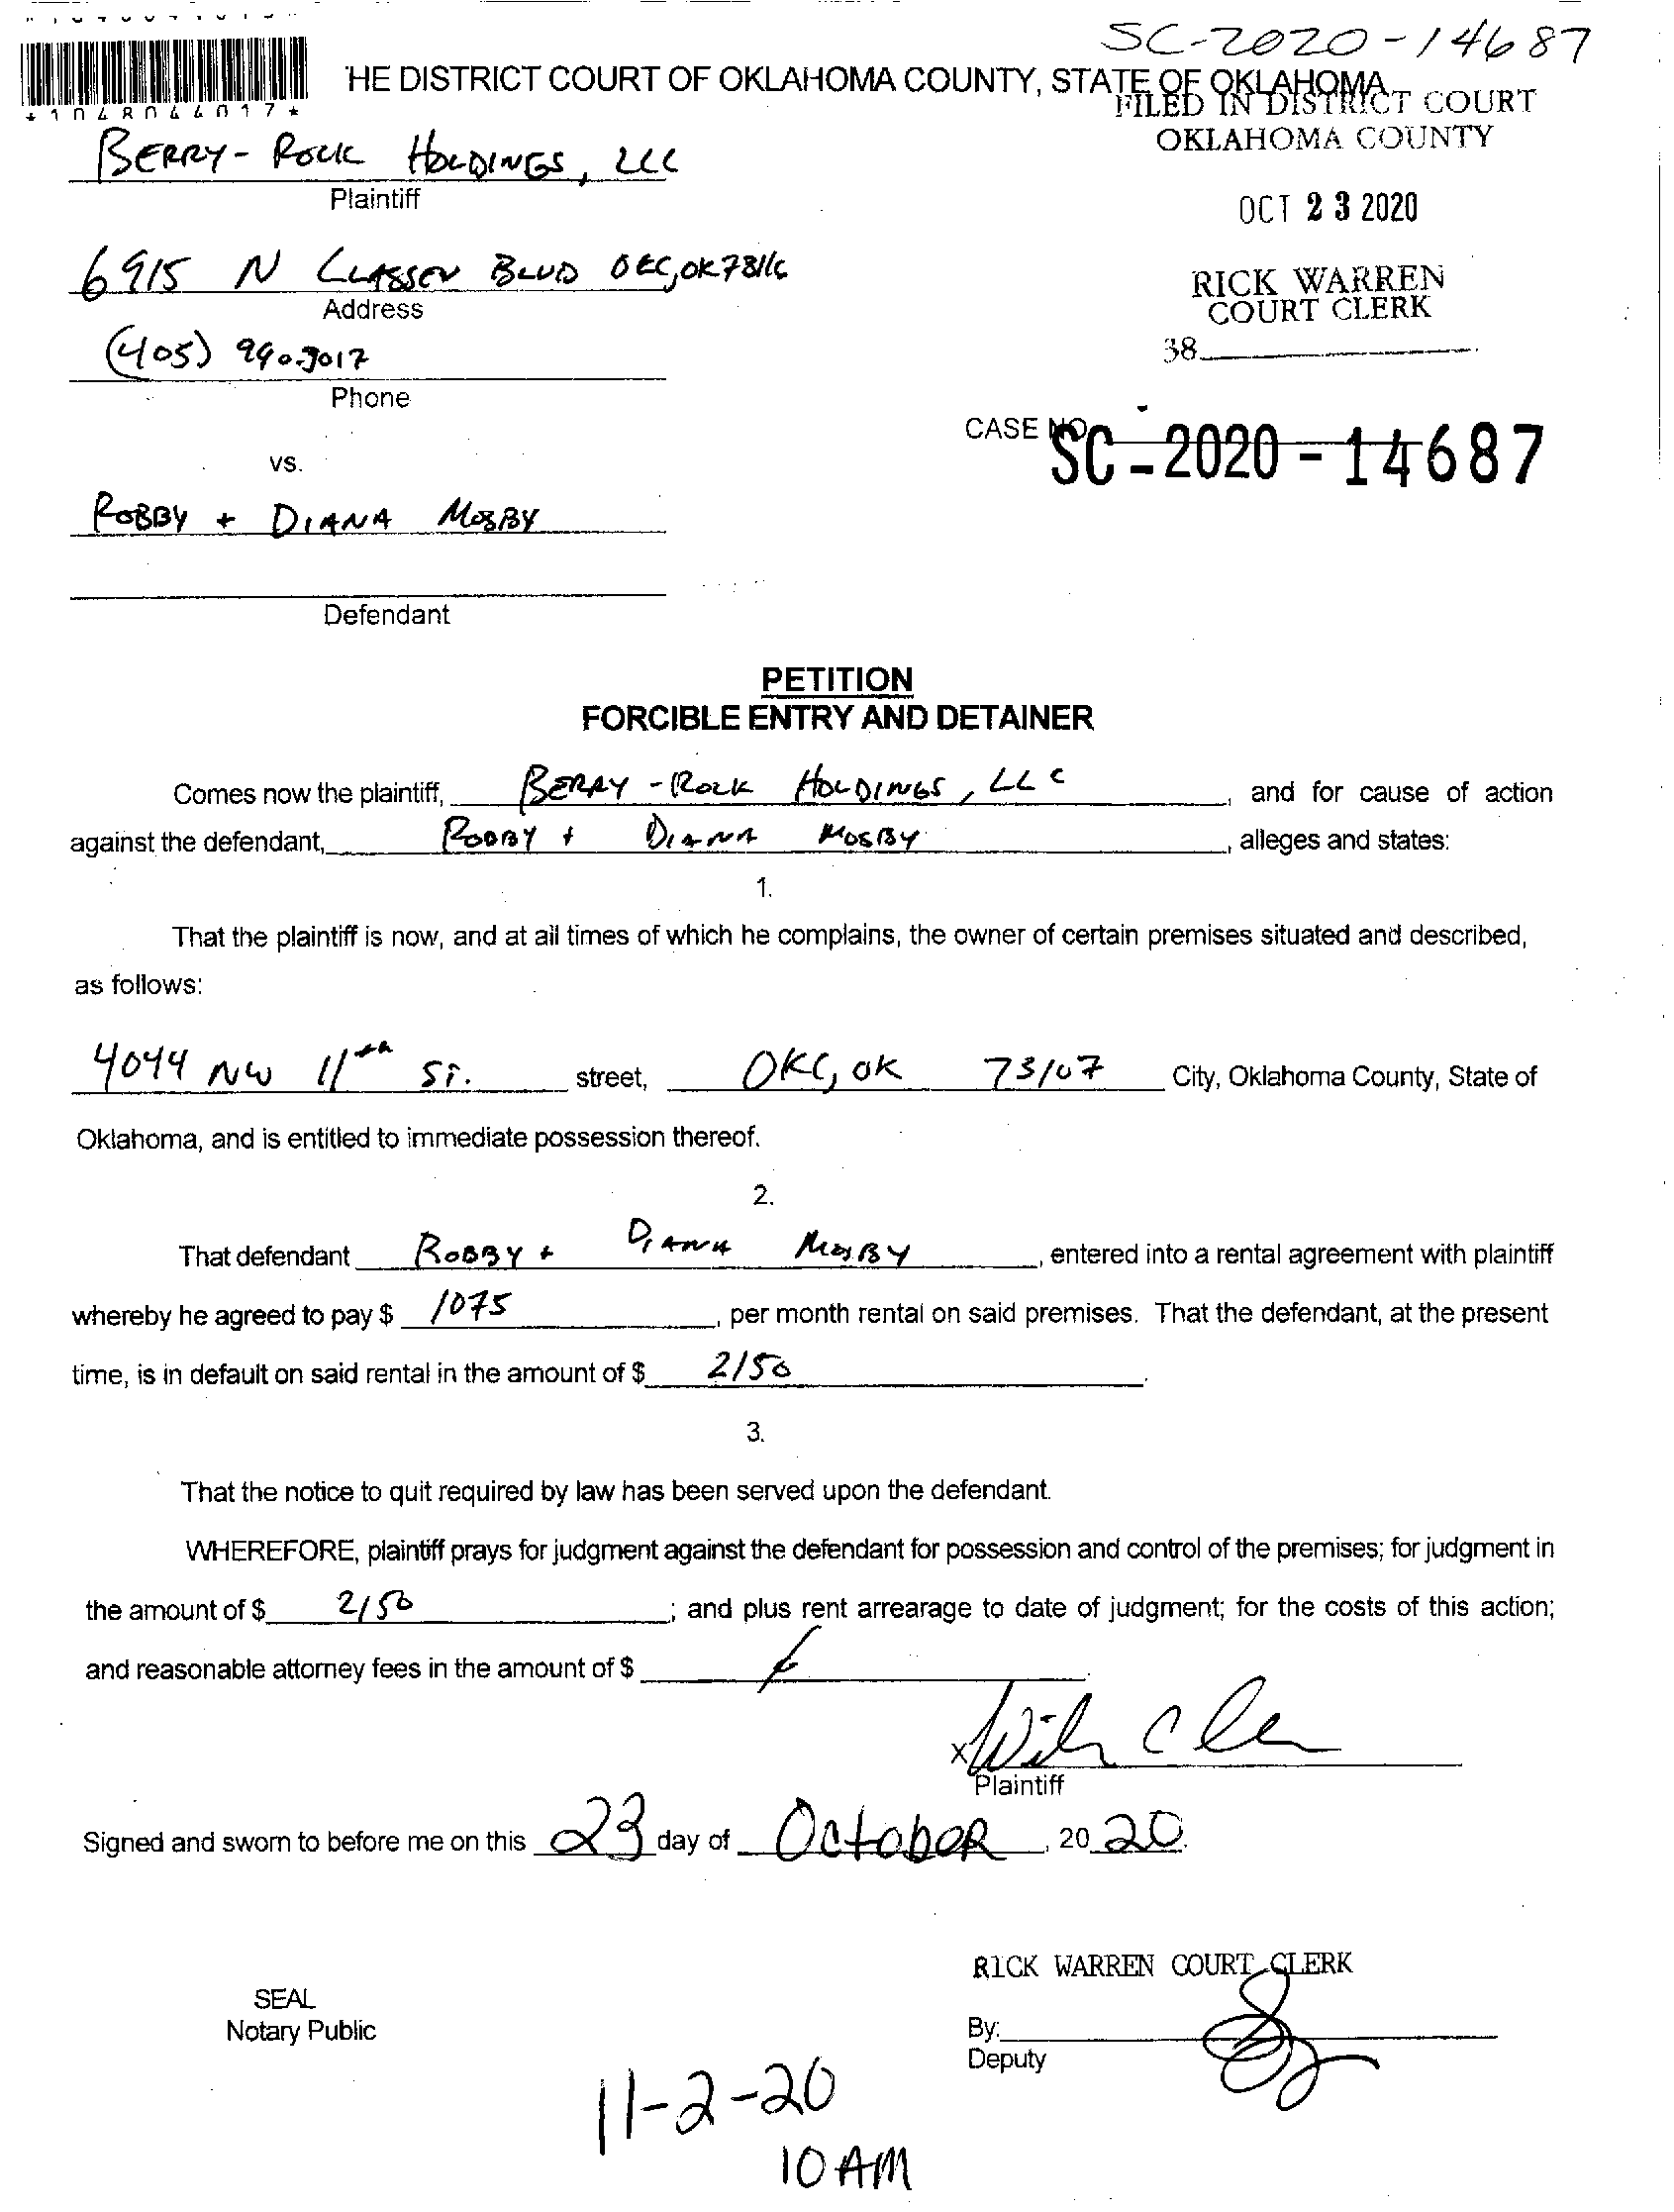 SC-2020-14687
*1048044017*
HE DISTRICT COURT OF OKLAHOMA COUNTY, STATE OF OKLAHOMA
FILED IN DISTRICT COURT
OKLAHOMA COUNTY
BERRY-ROCK HOLDINGS, LLC
Plaintiff
OCT 23 2020
6915 N CLASSEN BLVD OKC, OK 73116
Address
RICK WARREN
COURT CLERK
(405) 990-3017
38
Phone
CASE NO. SC-2020-14687
vs.
ROBBY + DIANA MOSBY
Defendant
PETITION
FORCIBLE ENTRY AND DETAINER
Comes now the plaintiff, BERRY-ROCK HOLDINGS, LLC, and for cause of action
against the defendant, ROBBY + DIANA MOSBY, alleges and states:
1.
That the plaintiff is now, and at all times of which he complains, the owner of certain premises situated and described,
as follows:
4044 NW 11th ST. street, OKC, OK 73107 City, Oklahoma County, State of
Oklahoma, and is entitled to immediate possession thereof.
2.
That defendant ROBBY + DIANA MOSBY, entered into a rental agreement with plaintiff
whereby he agreed to pay $ 1075, per month rental on said premises. That the defendant, at the present
time, is in default on said rental in the amount of $ 2150.
3.
That the notice to quit required by law has been served upon the defendant.
WHEREFORE, plaintiff prays for judgment against the defendant for possession and control of the premises; for judgment in
the amount of $ 2150; and plus rent arrearage to date of judgment; for the costs of this action;
and reasonable attorney fees in the amount of $
X
Plaintiff
Signed and sworn to before me on this 23 day of October, 2020.
RICK WARREN COURT CLERK
SEAL
Notary Public
By:
Deputy
11-2-20
10 AM